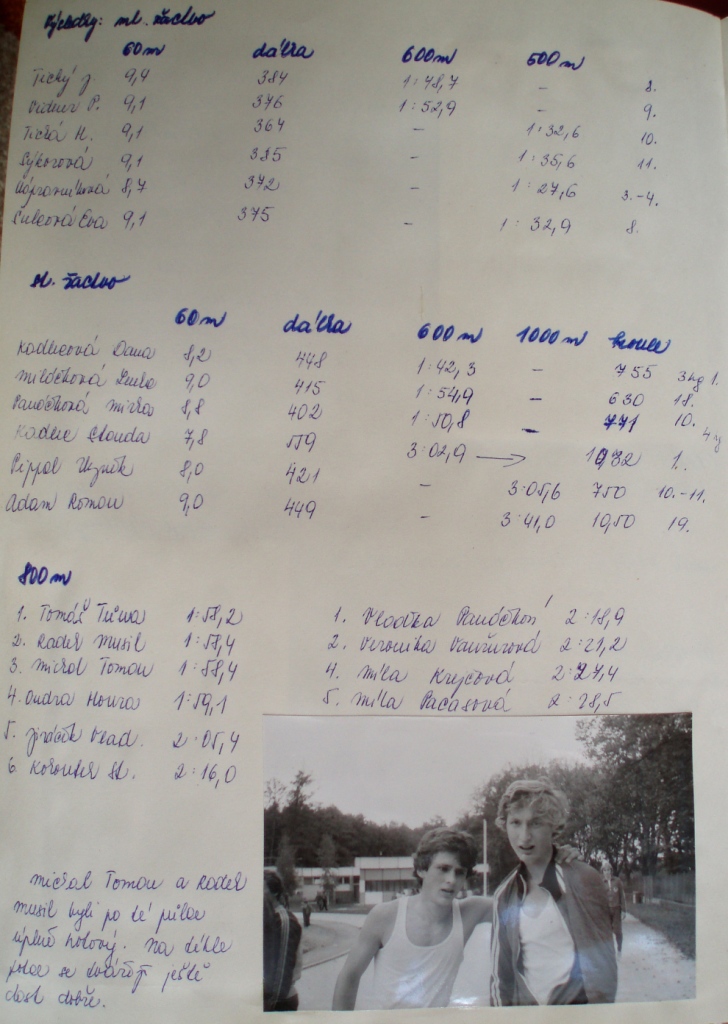 Výsledky: ml. žactvo
60m dálka 600m 500m
Tichý J. 9,4 384 1:48,7 - 8.
P. 9,1 376 1:52,9 - 9.
Tichá H. 9,1 364 - 1:32,6 10.
Sýkorová 9,1 385 - 1:35,6 11.
8,7 372 - 1:27,6 3.-4.
Eva 9,1 375 - 1:32,9 8.
st. žactvo
60m dálka 600m 1000m koule
Kadlecová Dana 8,2 448 1:42,3 - 755 3kg 1.
Lenka 9,0 415 1:54,9 - 630 18.
Panáčková Mirka 8,8 402 1:50,8 - 771 10.
Kadlec Standa 7,8 559 3:02,9 → 1.
Hynek 8,0 421 - 3:05,6 750 10.-11.
Adam Roman 9,0 449 - 3:41,0 1050 19.
800m
1. Tomáš 1:58,2
2. Radek Musil 1:58,4
3. Michal Toman 1:58,4
4. Ondra Houra 1:59,1
5. Vlad. 2:05,4
6. St. 2:16,0
1. Vlaďka 2:18,9
2. Veronika Vančurová 2:21,2
4. Míla Krejcová 2:27,4
5. Míla Pacasová 2:28,5
Michal Toman a Radek
Musil byli po té půlce
úplně hotový. Na téhle
fotce se ještě
dost dobře.